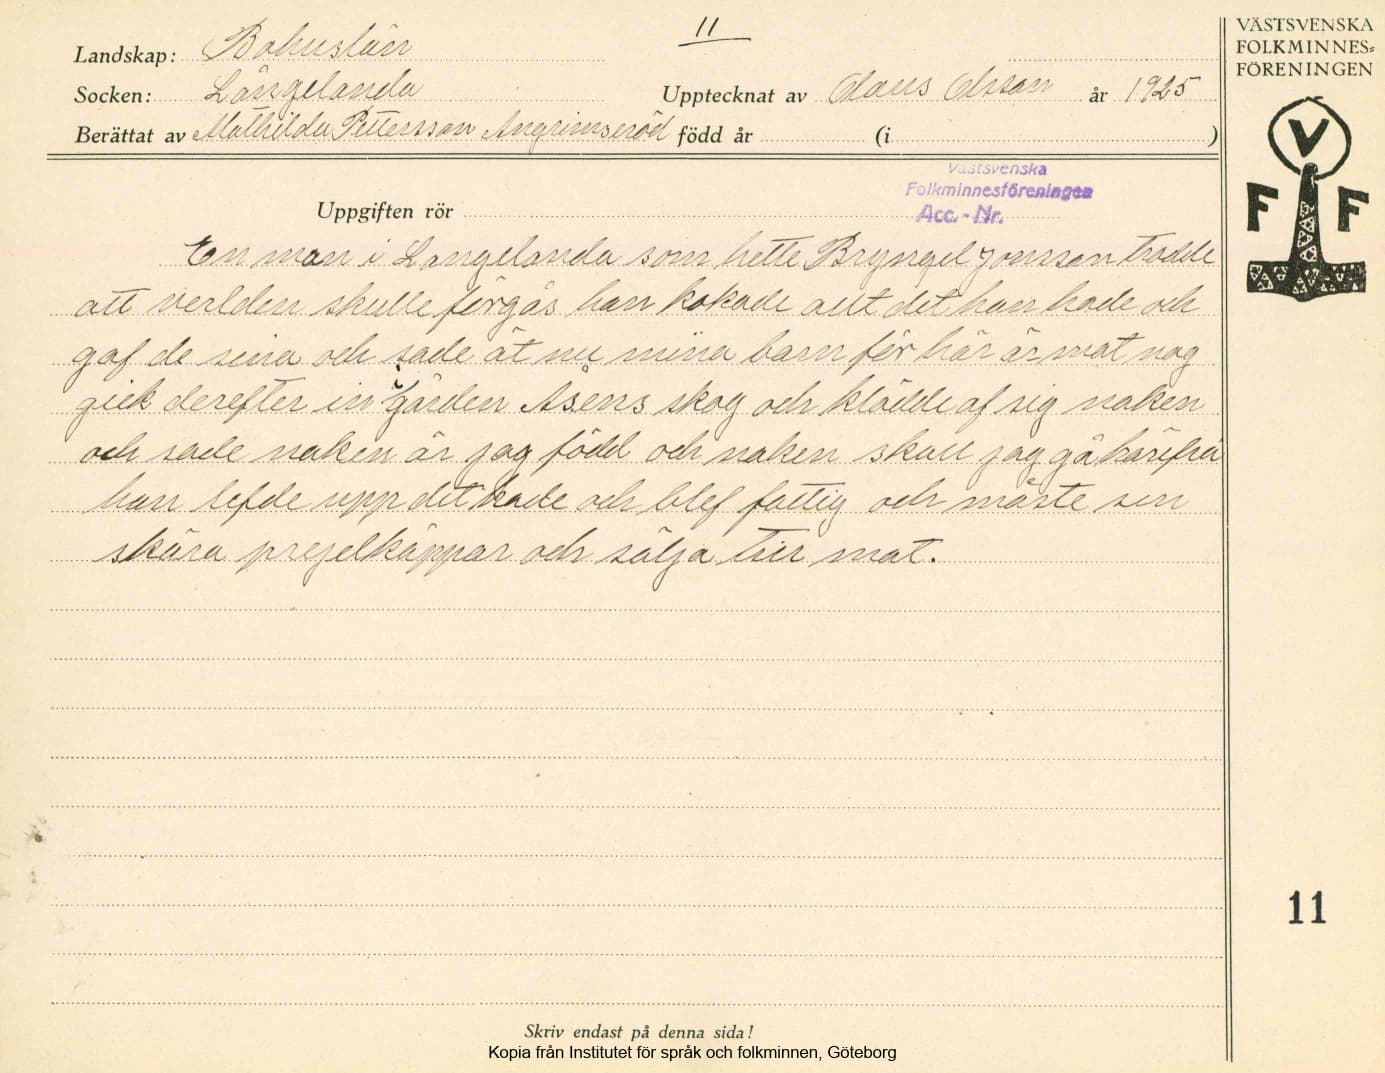 11
VÄSTSVENSKA
FOLKMINNES-
FÖRENINGEN
Landskap: Bohuslän
Socken: Långelanda Upptecknat av Olaus Olsson år 1925
Berättat av Mathilda Pettersson Angrimseröd född år (i )
Västsvenska
Folkminnesföreningen
Acc.-Nr.
V
F F
Uppgiften rör
En man i Langelanda som hette Bryngel Jonsson trodde
att verlden skulle förgås han kokade allt det han hade och
gaf de sina och sade ät nu mina barn för här är mat nog
gick derefter in i gården Åsens skog och klädde af sig naken
och sade naken är jag född och naken skall jag gå härifrå
han lefde upp det hade och blef fattig och måste sen
skära pregelkäppar och sälja till mat.
11
Skriv endast på denna sida!
Kopia från Institutet för språk och folkminnen, Göteborg